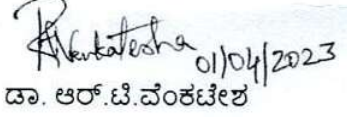 RtVenkatesha 01/04/2023
ಡಾ. ಆರ್.ಟಿ.ವೆಂಕಟೇಶ